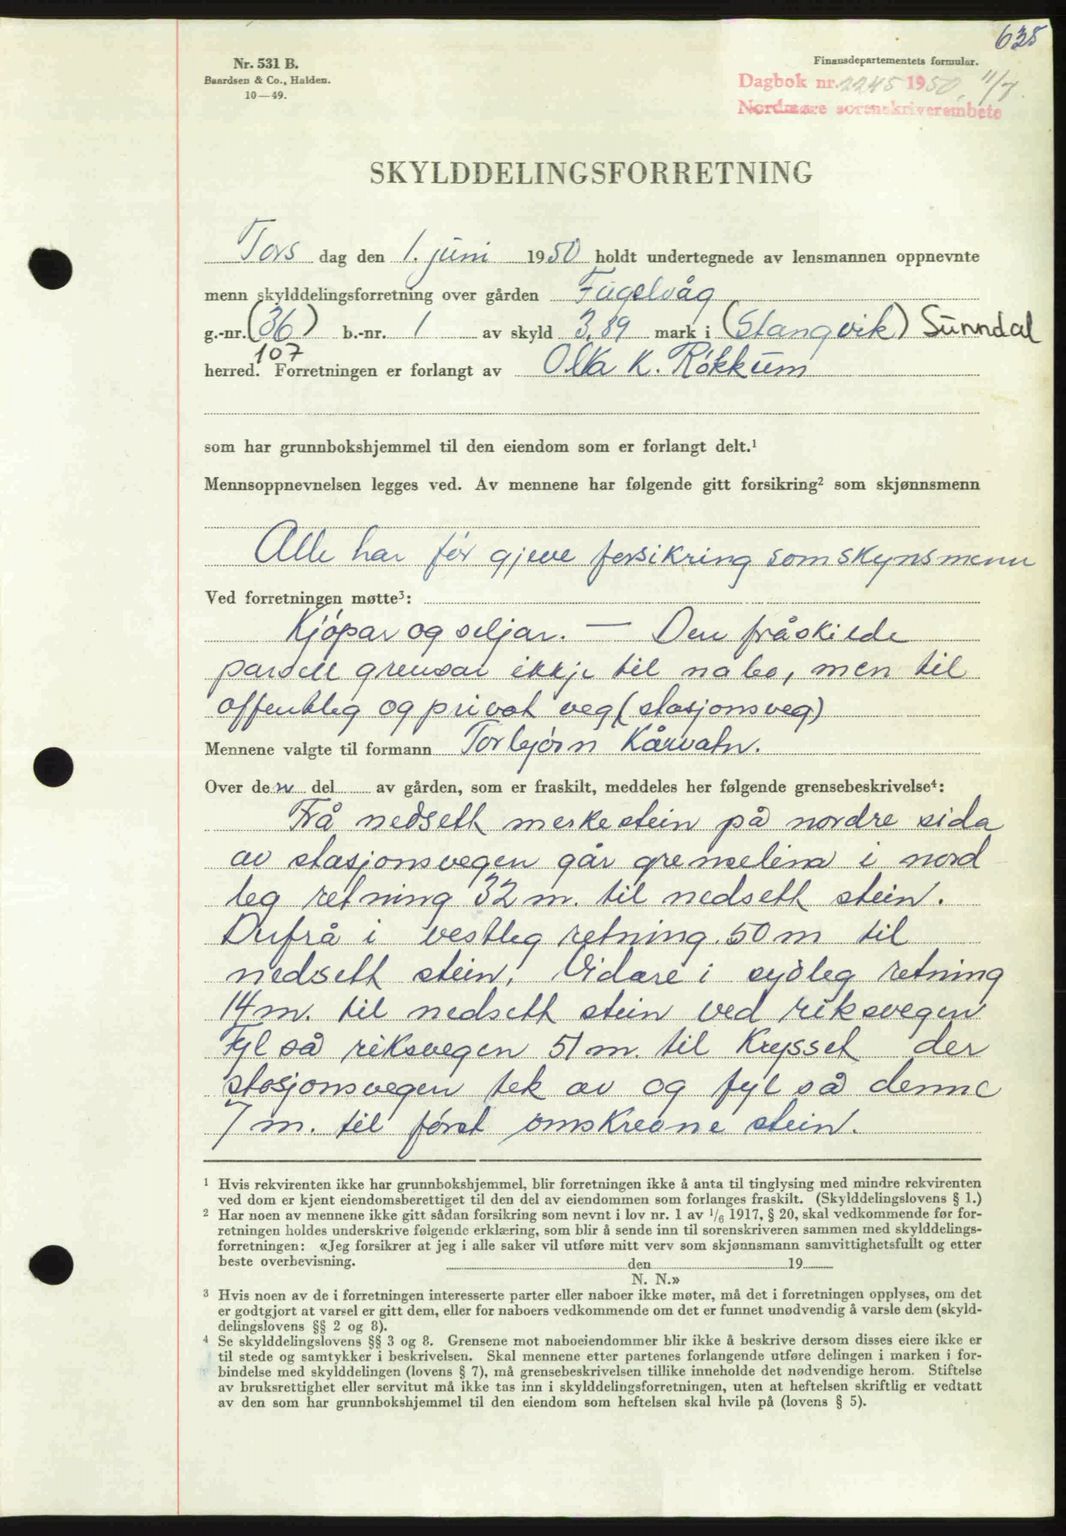 635
Nr. 531 B.
Baardsen & Co., Halden.
10—49.
Finansdepartementets formular.
Dagbok nr. 2245 1950, 11/7.
Nordmøre sorenskriverembete
SKYLDDELINGSFORRETNING
Tors dag den 1. juni 1950 holdt undertegnede av lensmannen oppnevnte
menn skylddelingsforretning over gården Fugelvåg
g.-nr. (36) b.-nr. 1 av skyld 3,89 mark i (Stangvik) Sunndal
107
herred. Forretningen er forlangt av Olka K. Røkkum
som har grunnbokshjemmel til den eiendom som er forlangt delt.¹
Mennsoppnevnelsen legges ved. Av mennene har følgende gitt forsikring² som skjønnsmenn
Alle har før gjeve forsikring som skynsmenn
Ved forretningen møtte³:
Kjøpar og seljar. — Den fråskilde
parsell grensar ikkje til nabo, men til
offentleg og privat veg (stasjonsveg)
Mennene valgte til formann Torbjørn Kårvatn.
Over den del av gården, som er fraskilt, meddeles her følgende grensebeskrivelse⁴:
Frå nedsett merkestein på nordre sida
av stasjonsvegen går grenselina i nord
leg retning 32 m. til nedsett stein.
Derfrå i vestleg retning 50 m til
nedsett stein. Vidare i sydleg retning
14 m. til nedsett stein ved riksvegen
Fyl så riksvegen 51 m. til krysset der
stasjonsvegen tek av og fyl så denne
7 m. til først omskrevne stein.
¹ Hvis rekvirenten ikke har grunnbokshjemmel, blir forretningen ikke å anta til tinglysing med mindre rekvirenten
ved dom er kjent eiendomsberettiget til den del av eiendommen som forlanges fraskilt. (Skylddelingslovens § 1.)
² Har noen av mennene ikke gitt sådan forsikring som nevnt i lov nr. 1 av 1/6 1917, § 20, skal vedkommende før for-
retningen holdes underskrive følgende erklæring, som blir å sende inn til sorenskriveren sammen med skylddelings-
forretningen: «Jeg forsikrer at jeg i alle saker vil utføre mitt verv som skjønnsmann samvittighetsfullt og etter
beste overbevisning. den 19
N. N.»
³ Hvis noen av de i forretningen interesserte parter eller naboer ikke møter, må det i forretningen opplyses, om det
er godtgjort at varsel er gitt dem, eller for naboers vedkommende om det er funnet unødvendig å varsle dem (skyld-
delingslovens §§ 2 og 8).
⁴ Se skylddelingslovens §§ 3 og 8. Grensene mot naboeiendommer blir ikke å beskrive dersom disses eiere ikke er
til stede og samtykker i beskrivelsen. Skal mennene etter partenes forlangende utføre delingen i marken i for-
bindelse med skylddelingen (lovens § 7), må grensebeskrivelsen tillike inneholde det nødvendige herom. Stiftelse
av bruksrettighet eller servitut må ikke tas inn i skylddelingsforretningen, uten at heftelsen skriftlig er vedtatt
av den som har grunnbokshjemmel til den eiendom som heftelsen skal hvile på (lovens § 5).